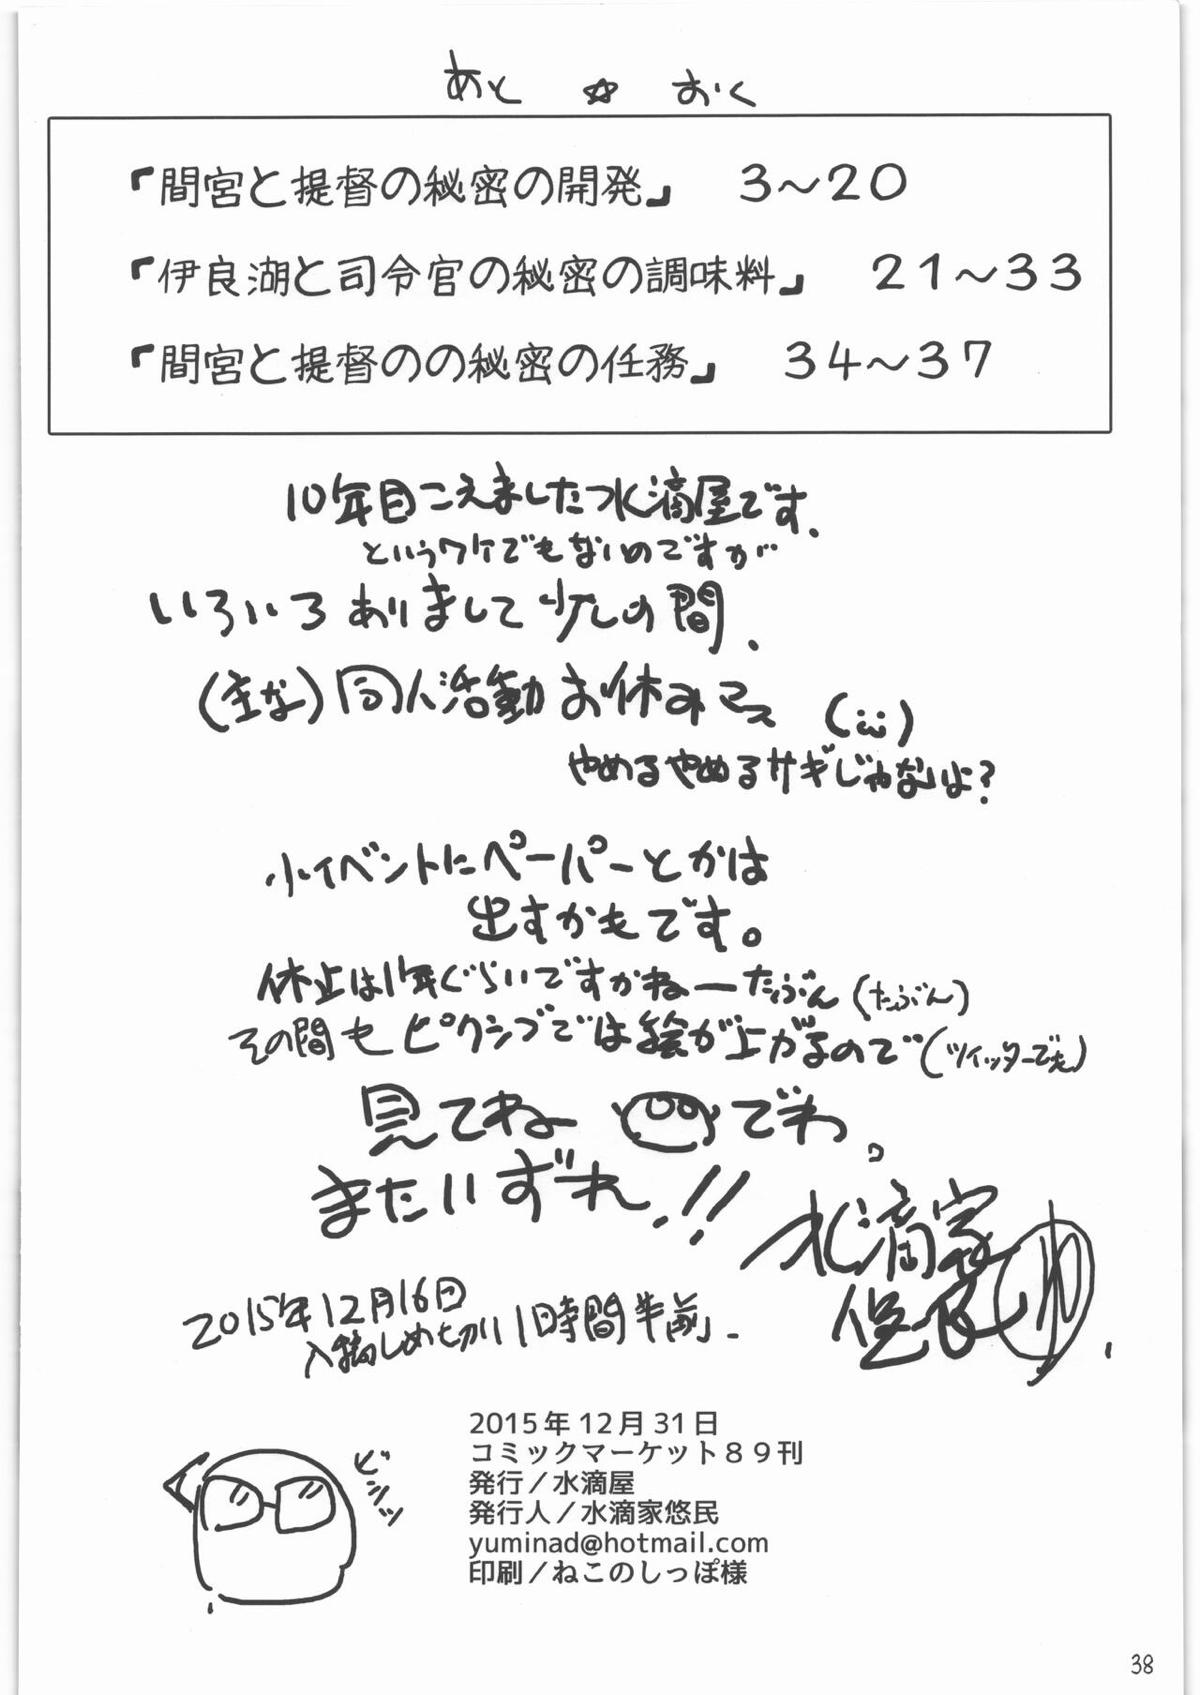 あと ☆ おく
『間宮と提督の秘密の開発』 3～20
『伊良湖と司令官の秘密の調味料』 21～33
『間宮と提督のの秘密の任務』 34～37
10年目こえました水滴屋です.
というワケでもないのですが
いろいろありまして少しの間.
(主な)同人活動お休みマス (ω)
やめるやめるサギじゃないよ?
小イベントにペーパーとかは
出すかもです。
休止は1年ぐらいですかねーたぶん(たぶん)
その間もピクシブでは絵が上がるので(ツイッターでも)
見てねー でわ、
またいずれ.!!
水滴家
悠民
2015年12月16日
入稿しめ切り1時間半前.
ビシッ
2015年12月31日
コミックマーケット89刊
発行／水滴屋
発行人／水滴家悠民
yuminad@hotmail.com
印刷／ねこのしっぽ様
38